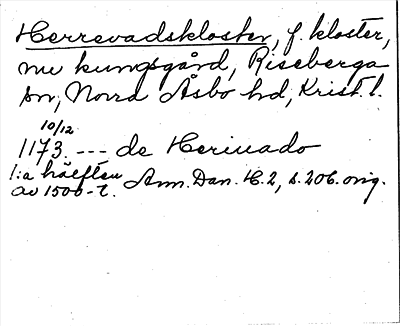 Herrevadskloster, f. kloster,
nu kungsgård, Riseberga
sn, Norra Åsbo hd, Krist. l.
10/12
1173 --- de Heriuado
1:a hälften
av 1500-t. Ann. Dan. H.2, s.206. orig.